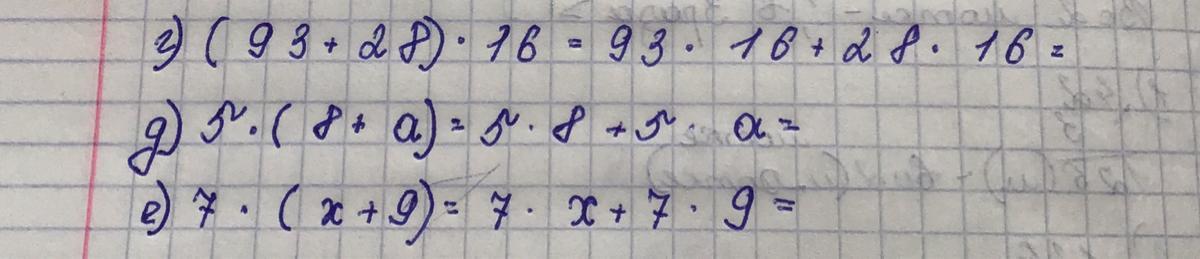 г) (93 + 28) · 16 = 93 · 16 + 28 · 16 =
д) 5 · (8 + a) = 5 · 8 + 5 · a =
е) 7 · (x + 9) = 7 · x + 7 · 9 =